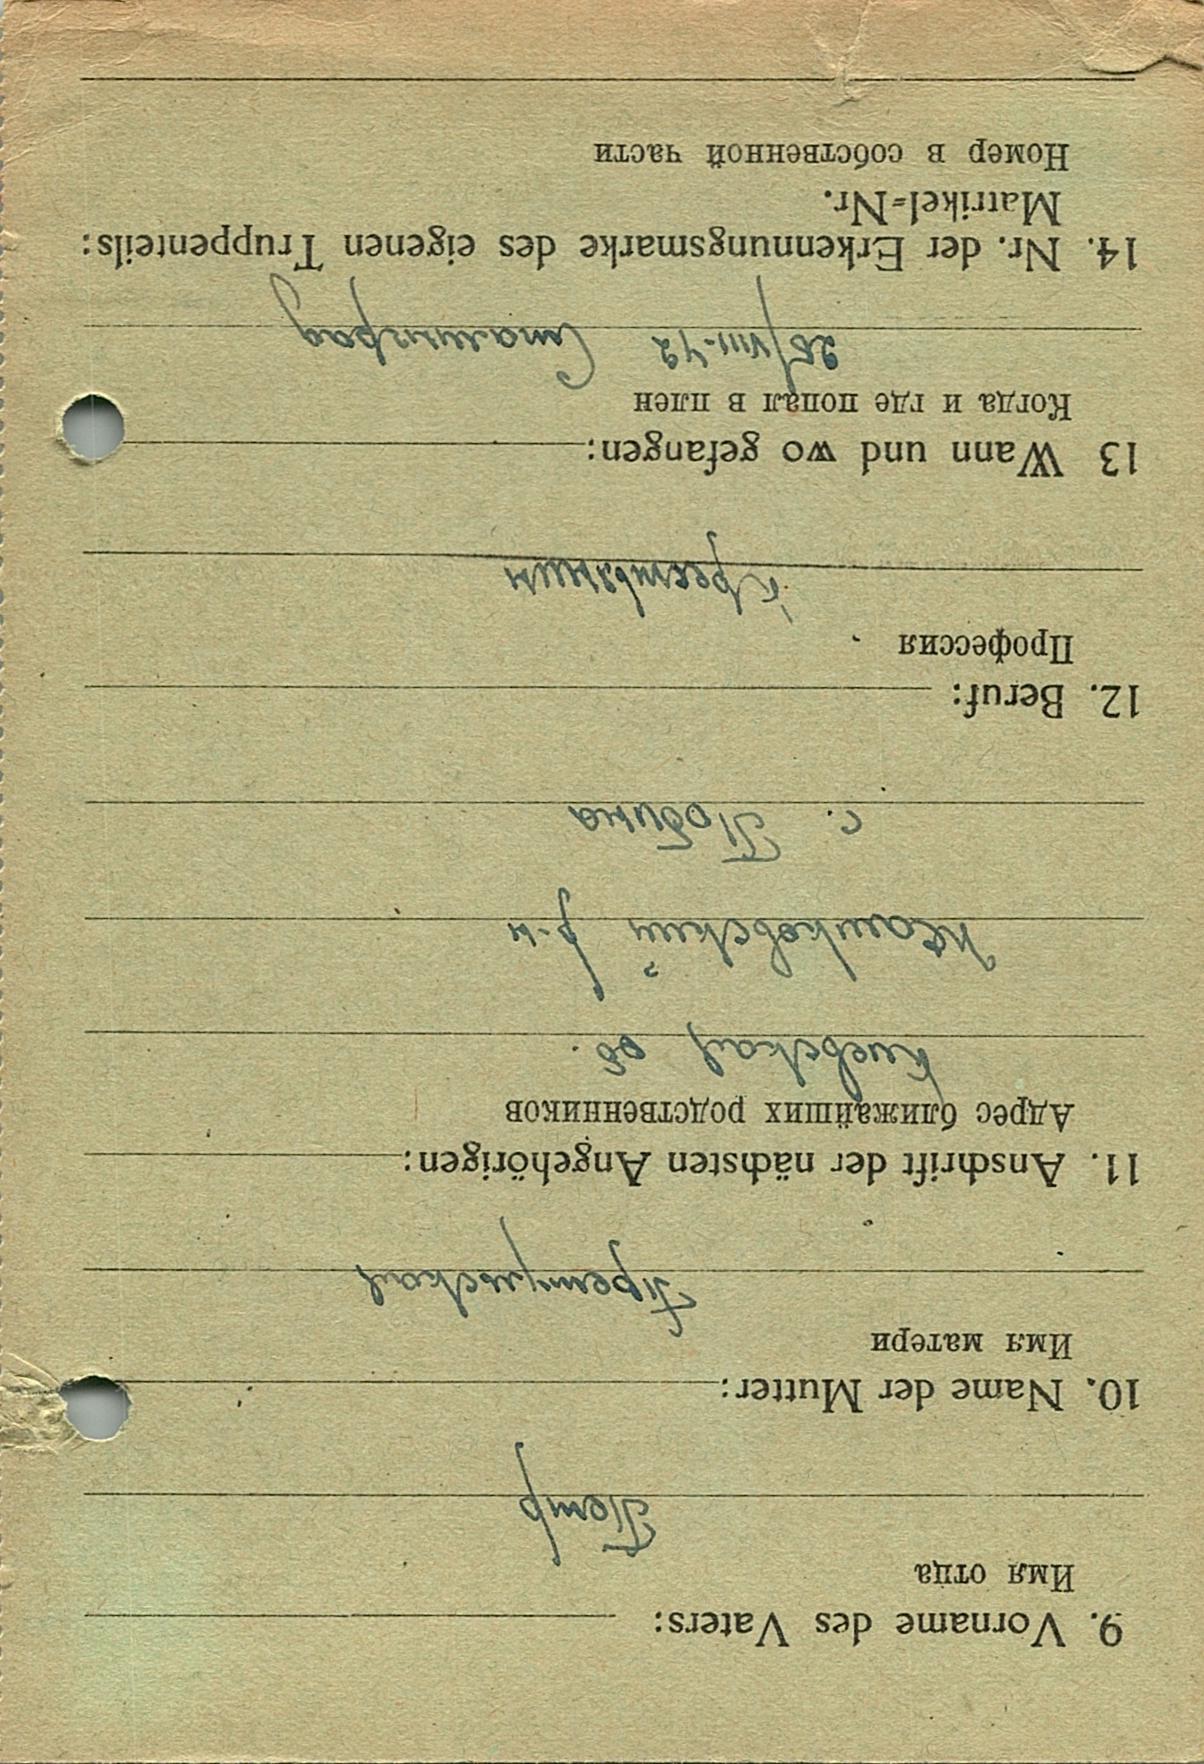 9. Vorname des Vaters:
Имя отца
Петр
10. Name der Mutter:
Имя матери
11. Anschrift der nächsten Angehörigen:
Адрес ближайших родственников
Киевская об.
р-н
с.
12. Beruf:
Профессия
Крестьянин
13 Wann und wo gefangen:
Когда и где попал в плен
25/VIII-42 Сталинград
14. Nr. der Erkennungsmarke des eigenen Truppenteils:
Matrikel=Nr.
Номер в собственной части